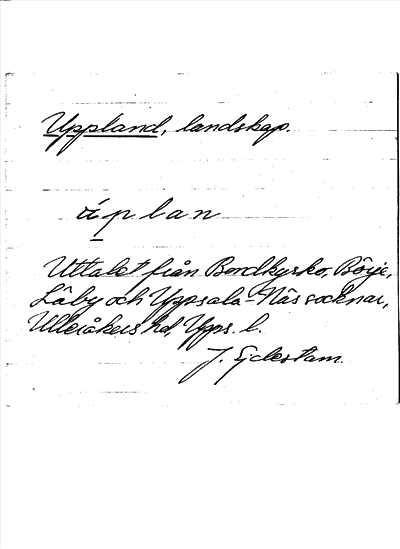 Uppland, landskap.
úplan
Uttalet från Bondkyrko, Börje,
Läby och Uppsala-Näs socknar,
Ulleråkers hd, Upps. l.
J. Ejdestam.